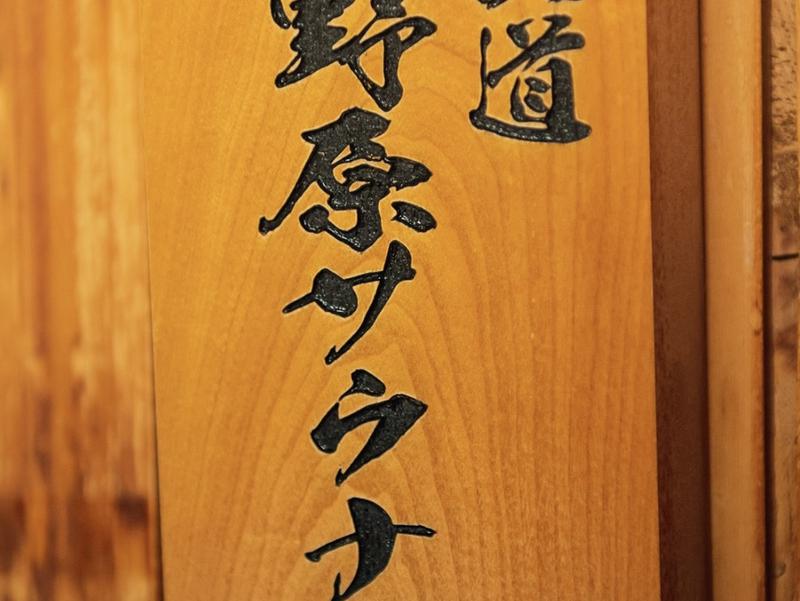 道
野原サウナ